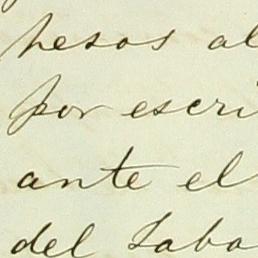 pesos al
por escri
ante el
del Saba